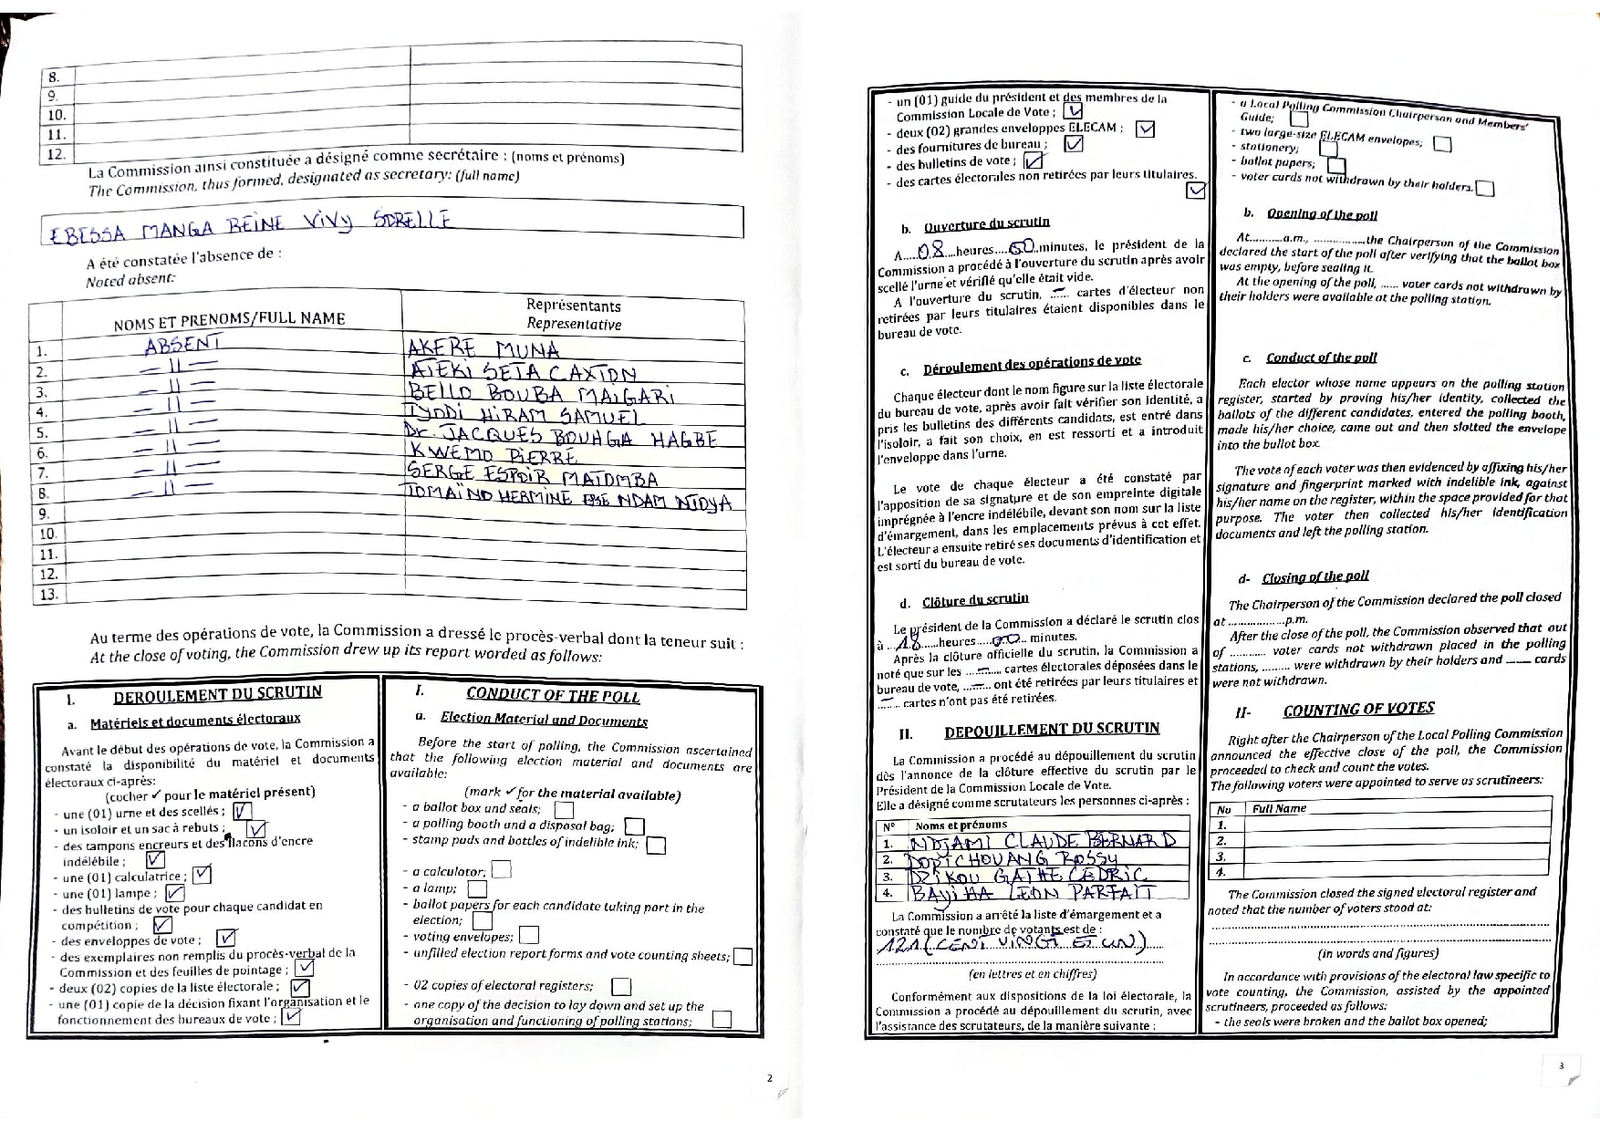 8.
9.
10.
11.
12.
La Commission ainsi constituée a désigné comme secrétaire : (noms et prénoms)
The Commission, thus formed, designated as secretary: (full name)
EBESSA MANGA REINE VIVY SORELLE
A été constatée l'absence de :
Noted absent:
NOMS ET PRENOMS/FULL NAME
Représentants
Representative
1. ABSENT AKERE MUNA
2. — 11 — ATEKI SETA CAXTON
3. — 11 — BELLO BOUBA MAIGARI
4. — 11 — IYODI HIRAM SAMUEL
5. — 11 — Dr. JACQUES BOUHGA HAGBE
6. — 11 — KWEMO PIERRE
7. — 11 — SERGE ESPOIR MATOMBA
8. — 11 — TOMAÏNO HERMINE EPSE NDAM NJOYA
9.
10.
11.
12.
13.
Au terme des opérations de vote, la Commission a dressé le procès-verbal dont la teneur suit :
At the close of voting, the Commission drew up its report worded as follows:
I. DEROULEMENT DU SCRUTIN
a. Matériels et documents électoraux
Avant le début des opérations de vote, la Commission a
constaté la disponibilité du matériel et documents
électoraux ci-après:
(cocher ✓ pour le matériel présent)
- une (01) urne et des scellés ; ✓
- un isoloir et un sac à rebuts ; ✓
- des tampons encreurs et des flacons d'encre
indélébile ; ✓
- une (01) calculatrice ; ✓
- une (01) lampe ; ✓
- des bulletins de vote pour chaque candidat en
compétition ; ✓
- des enveloppes de vote ; ✓
- des exemplaires non remplis du procès-verbal de la
Commission et des feuilles de pointage ; ✓
- deux (02) copies de la liste électorale ; ✓
- une (01) copie de la décision fixant l'organisation et le
fonctionnement des bureaux de vote ; ✓
I. CONDUCT OF THE POLL
a. Election Material and Documents
Before the start of polling, the Commission ascertained
that the following election material and documents are
available:
(mark ✓ for the material available)
- a ballot box and seals;
- a polling booth and a disposal bag;
- stamp pads and bottles of indelible ink;
- a calculator;
- a lamp;
- ballot papers for each candidate taking part in the
election;
- voting envelopes;
- unfilled election report forms and vote counting sheets;
- 02 copies of electoral registers;
- one copy of the decision to lay down and set up the
organisation and functioning of polling stations;
2
- un (01) guide du président et des membres de la
Commission Locale de Vote ; ✓
- deux (02) grandes enveloppes ELECAM ; ✓
- des fournitures de bureau ; ✓
- des bulletins de vote ; ✓
- des cartes électorales non retirées par leurs titulaires. ✓
b. Ouverture du scrutin
A.....08...heures....00..minutes, le président de la
Commission a procédé à l'ouverture du scrutin après avoir
scellé l'urne et vérifié qu'elle était vide.
A l'ouverture du scrutin, ..—.. cartes d'électeur non
retirées par leurs titulaires étaient disponibles dans le
bureau de vote.
c. Déroulement des opérations de vote
Chaque électeur dont le nom figure sur la liste électorale
du bureau de vote, après avoir fait vérifier son identité, a
pris les bulletins des différents candidats, est entré dans
l'isoloir, a fait son choix, en est ressorti et a introduit
l'enveloppe dans l'urne.
Le vote de chaque électeur a été constaté par
l'apposition de sa signature et de son empreinte digitale
imprégnée à l'encre indélébile, devant son nom sur la liste
d'émargement, dans les emplacements prévus à cet effet.
L'électeur a ensuite retiré ses documents d'identification et
est sorti du bureau de vote.
d. Clôture du scrutin
Le président de la Commission a déclaré le scrutin clos
à ...18......heures.....00... minutes.
Après la clôture officielle du scrutin, la Commission a
noté que sur les ....—.... cartes électorales déposées dans le
bureau de vote, ...—... ont été retirées par leurs titulaires et
..—.. cartes n'ont pas été retirées.
II. DEPOUILLEMENT DU SCRUTIN
La Commission a procédé au dépouillement du scrutin
dès l'annonce de la clôture effective du scrutin par le
Président de la Commission Locale de Vote.
Elle a désigné comme scrutateurs les personnes ci-après :
N° Noms et prénoms
1. NDJAMI CLAUDE BERNARD
2. DOPTCHOUANG ROSSY
3. DZIKOU GATHE CEDRIC
4. BAYIHA LEON PARFAIT
La Commission a arrêté la liste d'émargement et a
constaté que le nombre de votants est de :
121 (CENT VINGT ET UN)
(en lettres et en chiffres)
Conformément aux dispositions de la loi électorale, la
Commission a procédé au dépouillement du scrutin, avec
l'assistance des scrutateurs, de la manière suivante :
- a Local Polling Commission Chairperson and Members'
Guide;
- two large-size ELECAM envelopes;
- stationery;
- ballot papers;
- voter cards not withdrawn by their holders.
b. Opening of the poll
At...........a.m., .................the Chairperson of the Commission
declared the start of the poll after verifying that the ballot box
was empty, before sealing it.
At the opening of the poll, ...... voter cards not withdrawn by
their holders were available at the polling station.
c. Conduct of the poll
Each elector whose name appears on the polling station
register, started by proving his/her identity, collected the
ballots of the different candidates, entered the polling booth,
made his/her choice, came out and then slotted the envelope
into the ballot box.
The vote of each voter was then evidenced by affixing his/her
signature and fingerprint marked with indelible ink, against
his/her name on the register, within the space provided for that
purpose. The voter then collected his/her identification
documents and left the polling station.
d- Closing of the poll
The Chairperson of the Commission declared the poll closed
at ..................p.m.
After the close of the poll, the Commission observed that out
of ........... voter cards not withdrawn placed in the polling
stations, ......... were withdrawn by their holders and ........ cards
were not withdrawn.
II- COUNTING OF VOTES
Right after the Chairperson of the Local Polling Commission
announced the effective close of the poll, the Commission
proceeded to check and count the votes.
The following voters were appointed to serve as scrutineers:
No Full Name
1.
2.
3.
4.
The Commission closed the signed electoral register and
noted that the number of voters stood at:
(in words and figures)
In accordance with provisions of the electoral law specific to
vote counting, the Commission, assisted by the appointed
scrutineers, proceeded as follows:
- the seals were broken and the ballot box opened;
3